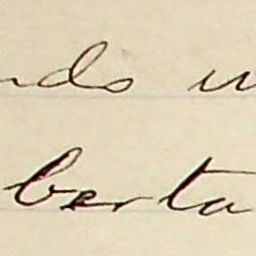 nds
berta